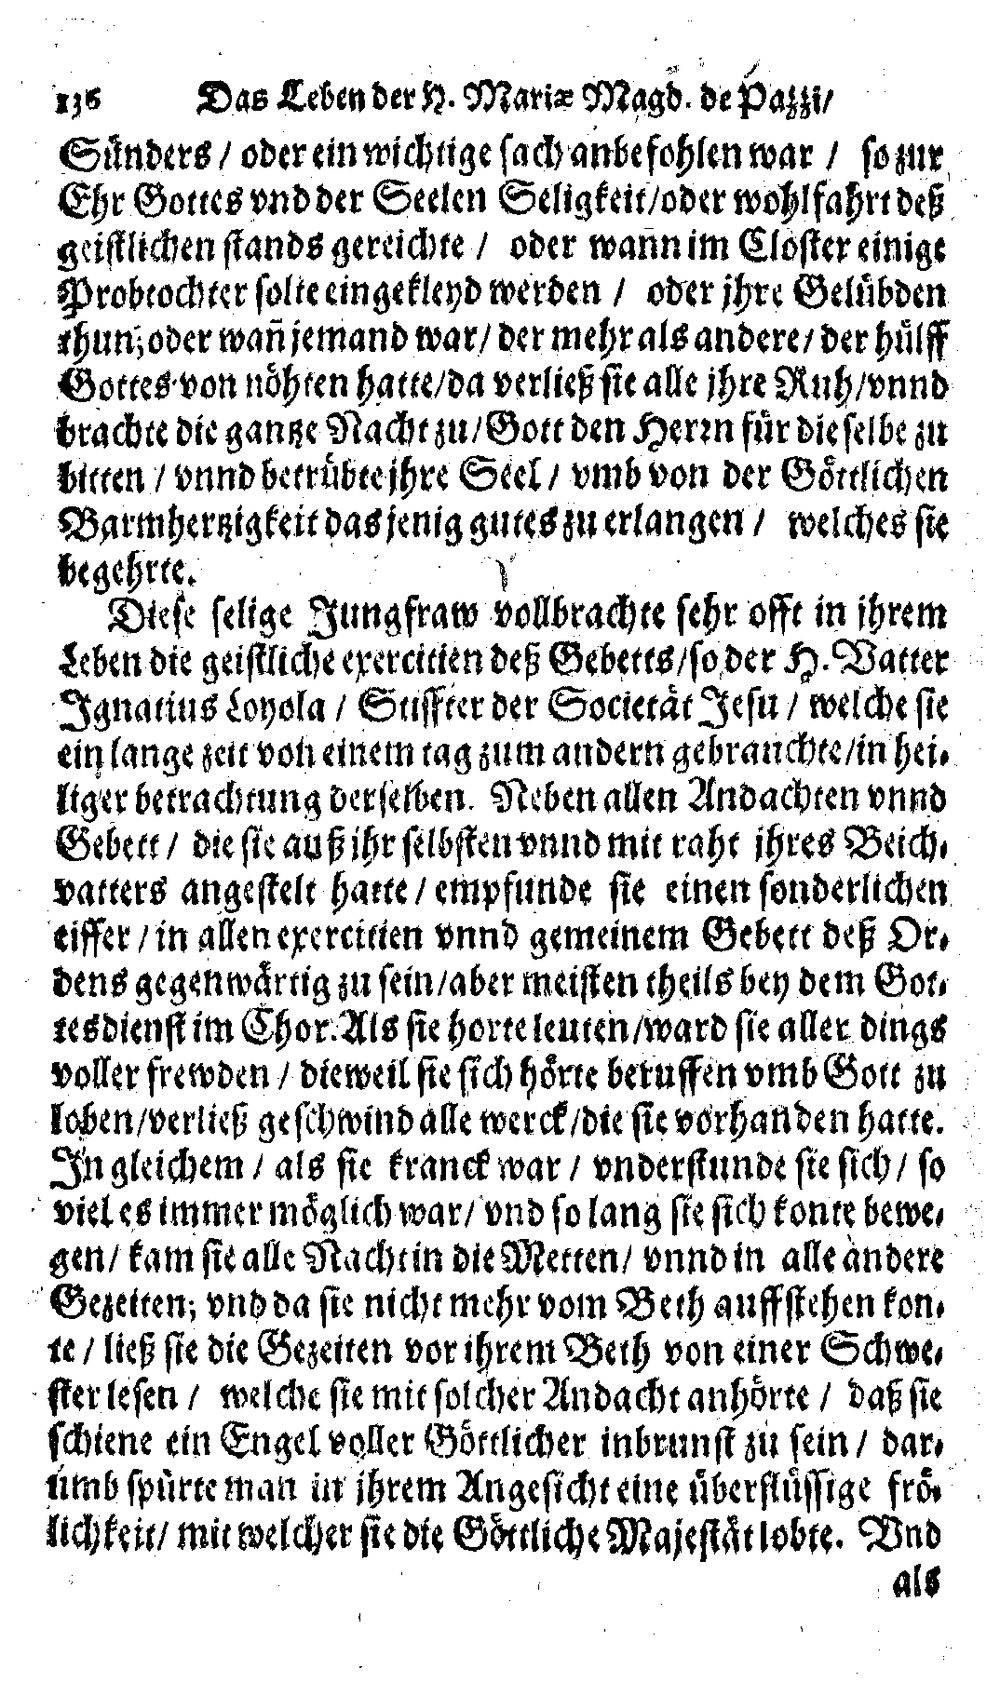 136 Das Leben der H. Mariæ Magd. de Pazzi/
Sünders / oder ein wichtige sach anbefohlen war / so zur
Ehr Gottes vnd der Seelen Seligkeit/oder wohlfahrt deß
geistlichen stands gereichte / oder wañn im Closter einige
Probtochter solte eingekleyd werden / oder jhre Gelübden
thun; oder wañ jemand war/ der mehr als andere/ der hülff
Gottes von nöhten hatte/da verließ sie alle jhre Ruh/vnnd
brachte die gantze Nacht zu/Gott den Herrn für dieselbe zu
bitten / vnnd betrübte jhre Seel / vmb von der Göttlichen
Barmhertzigkeit das jenig gutes zu erlangen / welches sie
begehrte.
Diese selige Jungfraw vollbrachte sehr offt in jhrem
Leben die geistliche exercitien deß Gebetts/so der H. Vatter
Ignatius Loyola / Stiffter der Societät Jesu / welche sie
ein lange zeit von einem tag zum andern gebrauchte/in hei-
liger betrachtung derselben. Neben allen Andachten vnnd
Gebett / die sie auß ihr selbsten vnnd mit raht jhres Beich-
vatters angestelt hatte / empfunde sie einen sonderlichen
eiffer / in allen exercitien vnnd gemeinem Gebett deß Or-
dens gegenwärtig zu sein/aber meisten theils bey dem Got-
tesdienst im Chor. Als sie horte leuten/ward sie aller dings
voller frewden / dieweil sie sich hörte beruffen vmb Gott zu
loben/verließ geschwind alle werck/die sie vorhanden hatte.
In gleichem / als sie kranck war / vnderstunde sie sich / so
viel es immer möglich war/ vnd so lang sie sich konte bewe-
gen/ kam sie alle Nacht in die Metten/ vnnd in alle andere
Gezeiten; vnd da sie nicht mehr vom Beth auffstehen kon-
te / ließ sie die Gezeiten vor ihrem Beth von einer Schwe-
ster lesen / welche sie mit solcher Andacht anhörte / daß sie
schiene ein Engel voller Göttlicher inbrunst zu sein / dar-
umb spürte man in jhrem Angesicht eine überflüssige frö-
lichkeit/ mit welcher sie die Göttliche Majestät lobte. Vnd
als